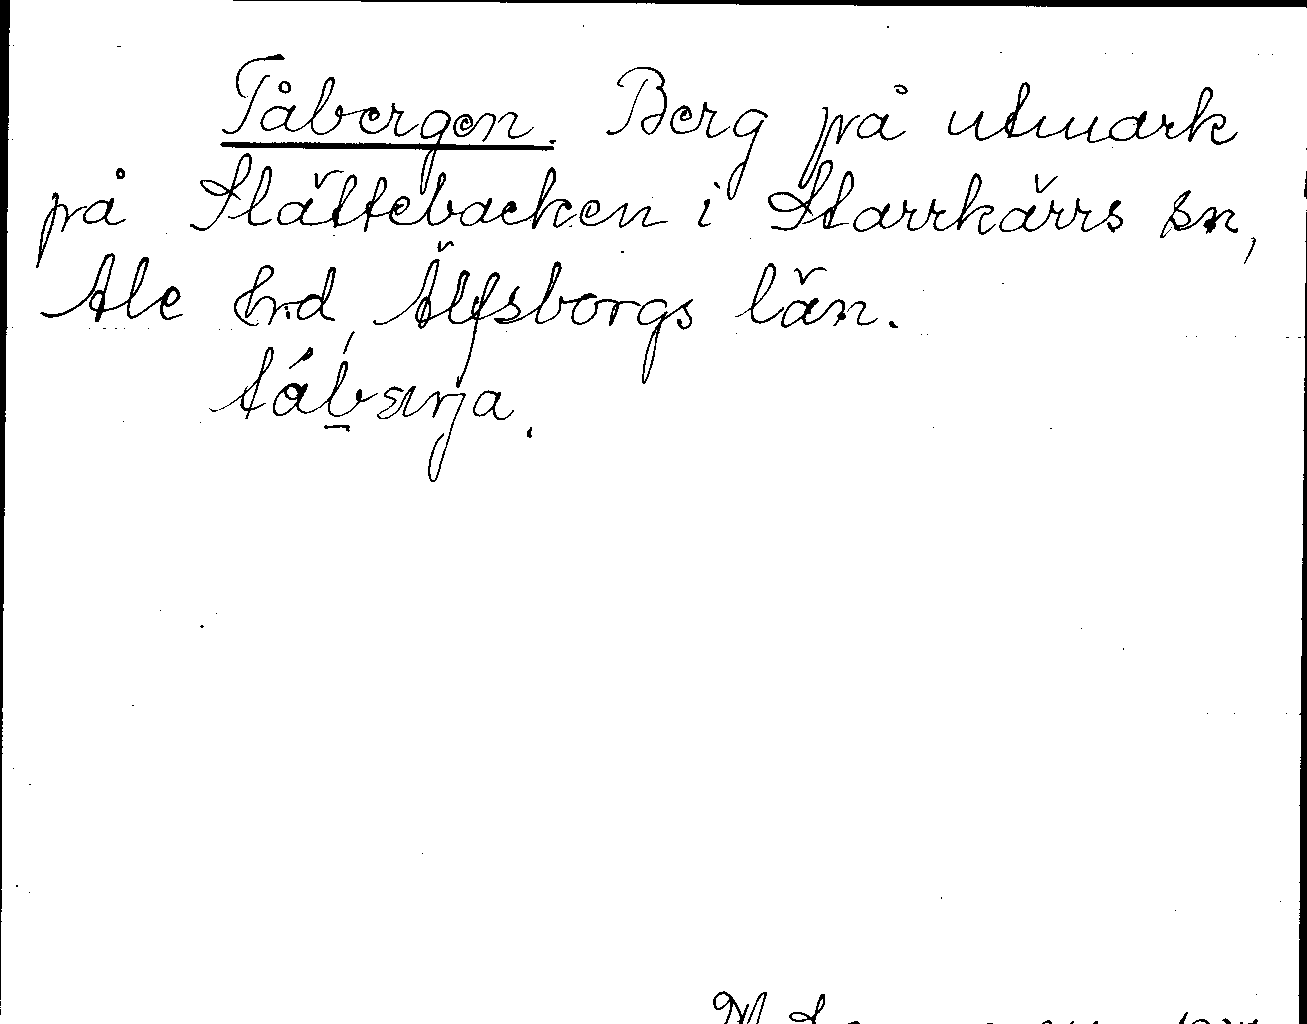 Tåbergen. Berg på utmark
på Slättebacken i Starrkärrs sn,
Ale hrd, Älfsborgs län.
tábærja.